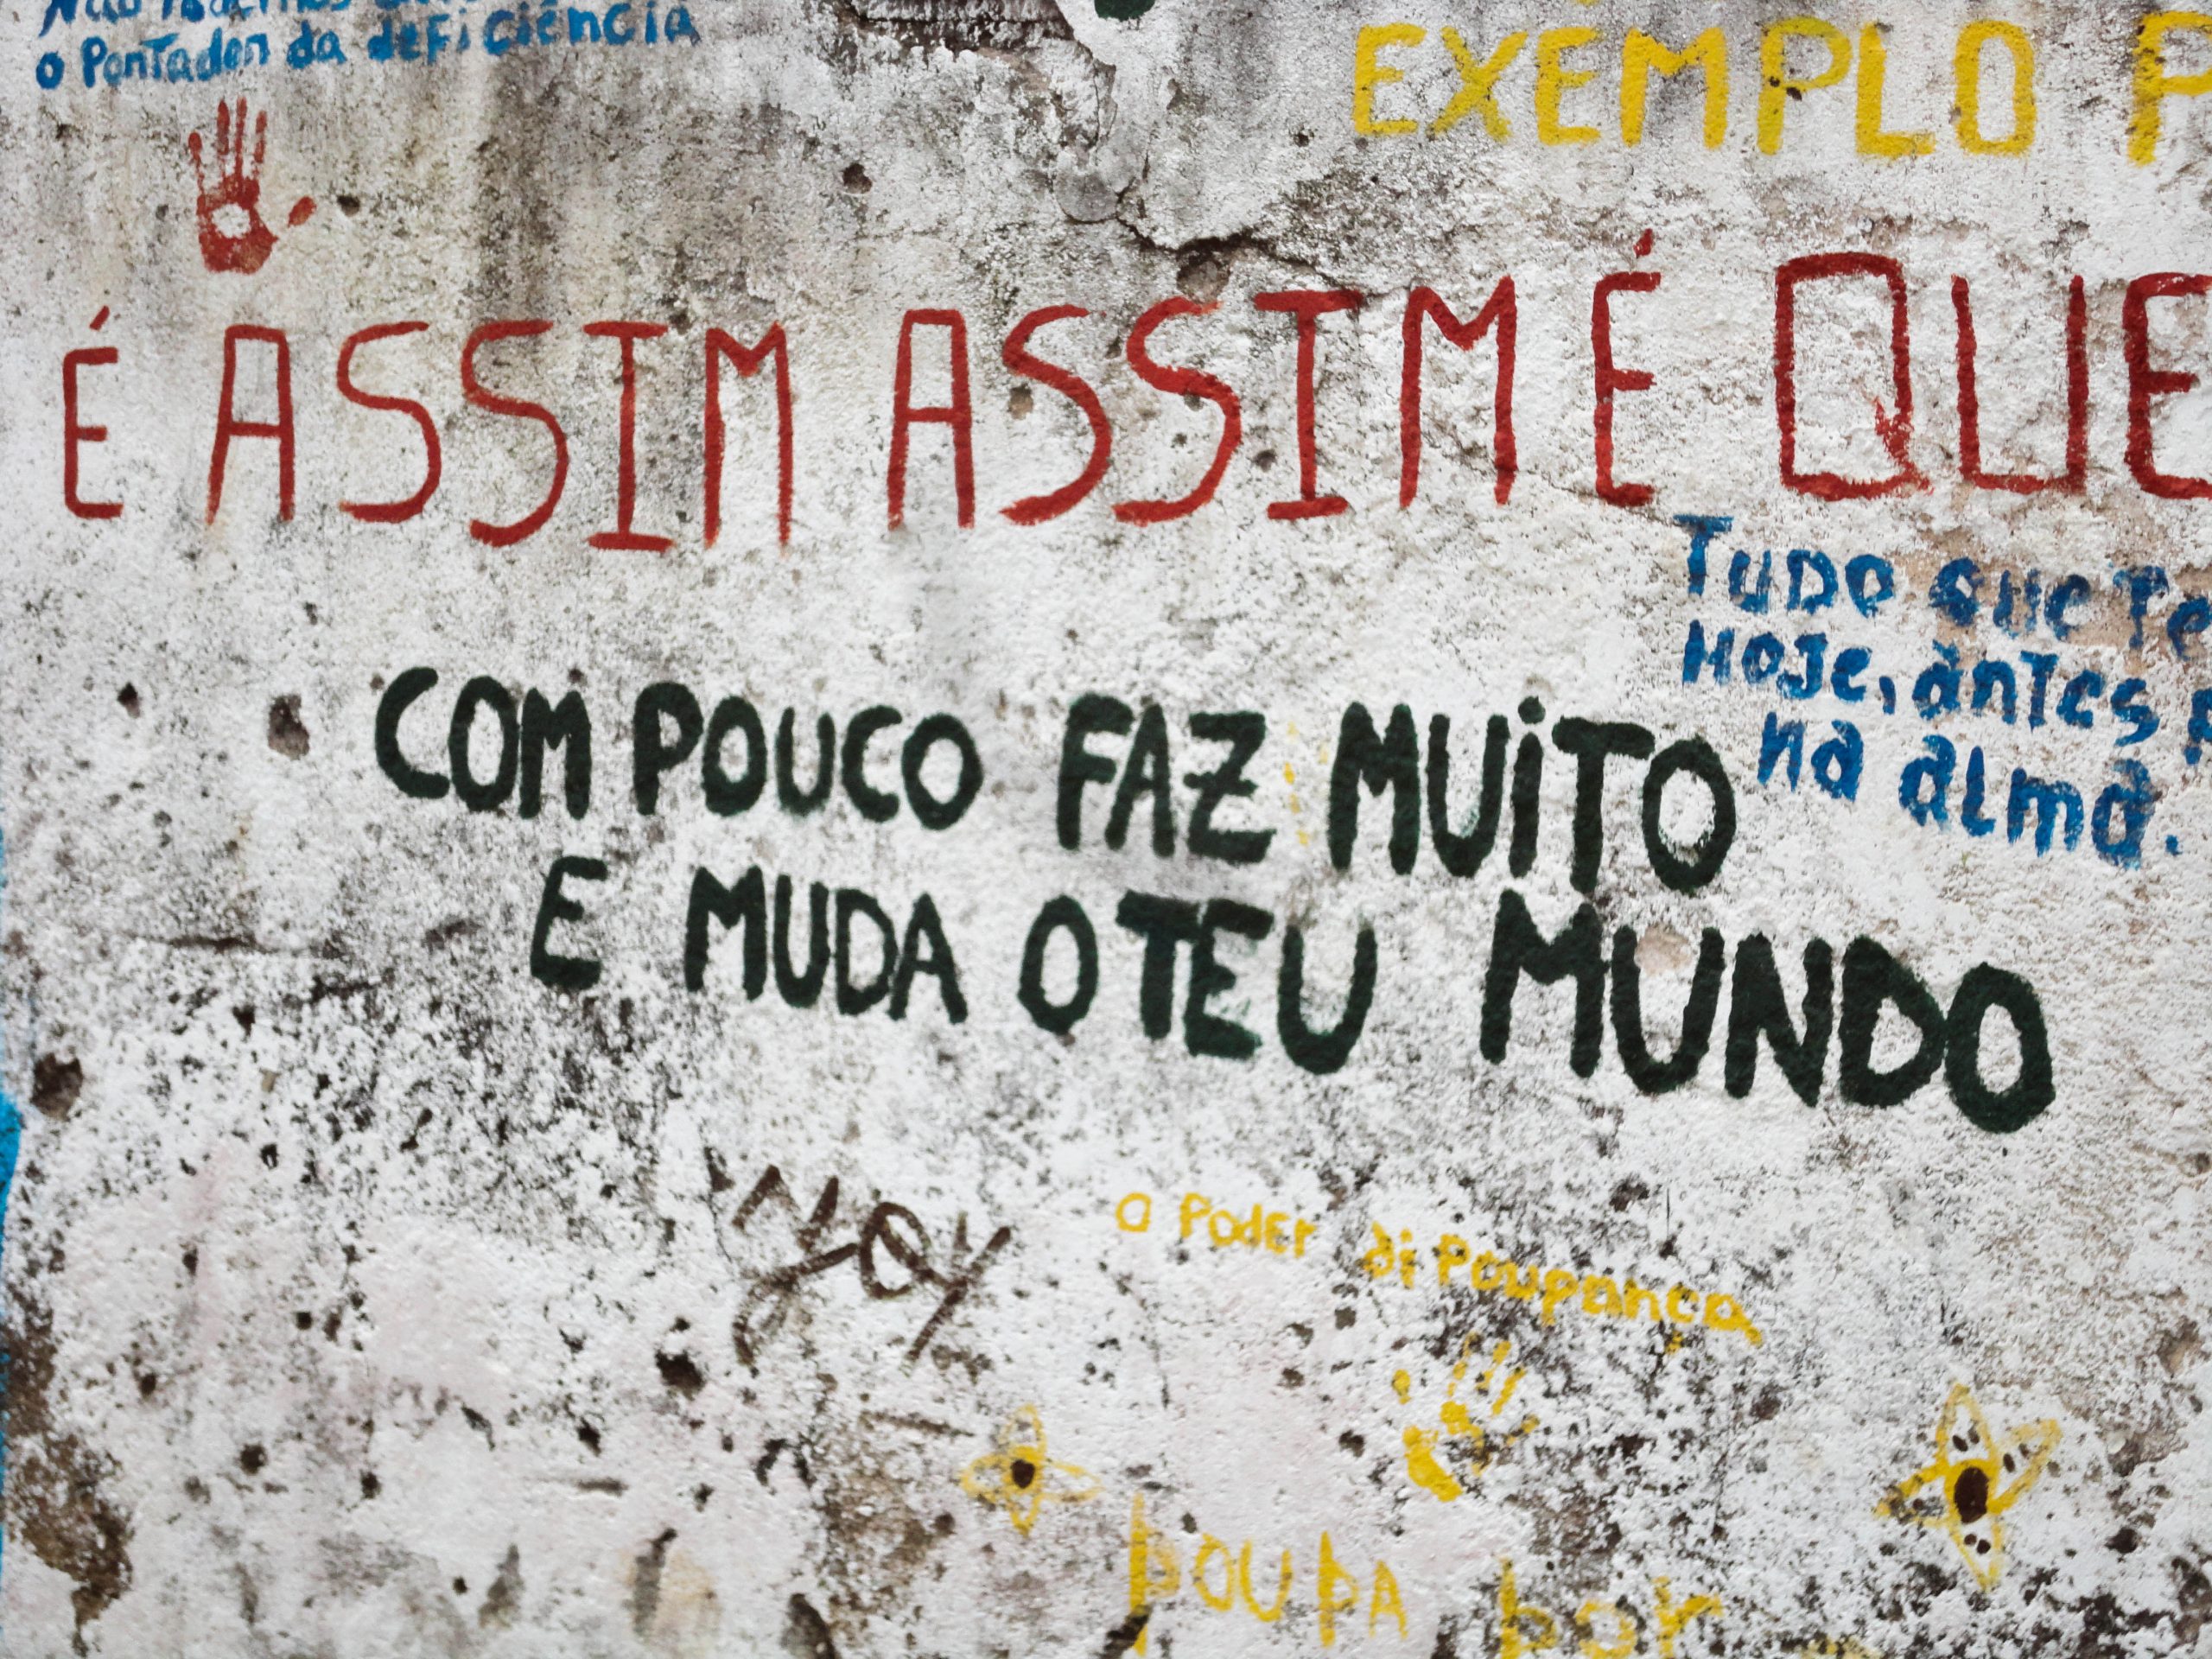 o Pontador da deficiência
EXEMPLO P
É ASSIM ASSIM É QUE
TUDO QUE Te
HOJE, àntes
na alma.
COM POUCO FAZ MUITO
E MUDA O TEU MUNDO
O PodEr di Poupança
POUPA